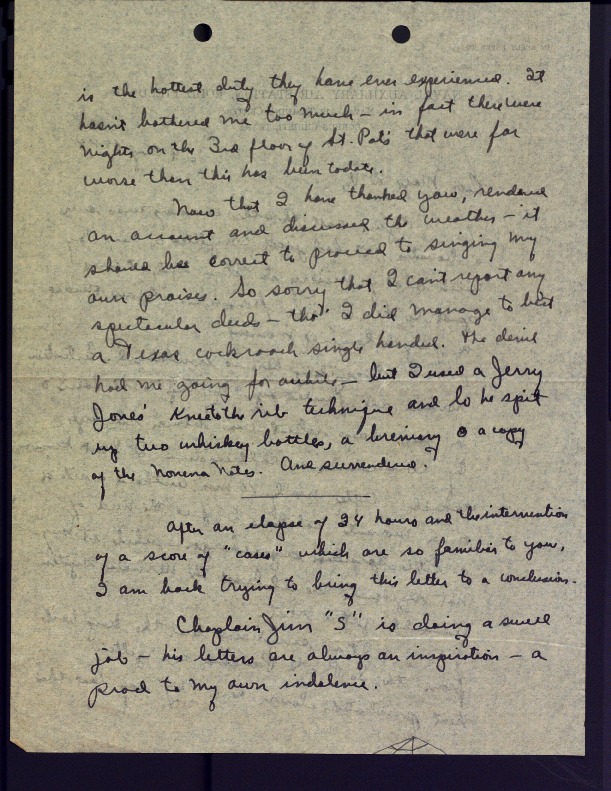 is the hottest duty they have ever experienced. It
hasn't bothered me too much - in fact there were
nights on the 3rd floor of St. Pat's that were far
worse than this has been to date.
Now that I have thanked you, rendered
an account and discussed the weather - it
should be correct to proceed to singing my
own praises. So sorry that I can't report any
spectacular deeds - tho' I did manage to best
a Texas cockroach single handed. The devil
had me going for awhile - but I used a Jerry
Jones' knee to the rib technique and lo he spit
up two whiskey bottles, a breviary & a copy
of the Novena Notes. And surrendered.
After an elapse of 24 hours and the intervention
of a score of "cases" which are so familiar to you,
I am back trying to bring this letter to a conclusion.
Chaplain Jim "S" is doing a swell
job - his letters are always an inspiration - a
prod to my own indolence.